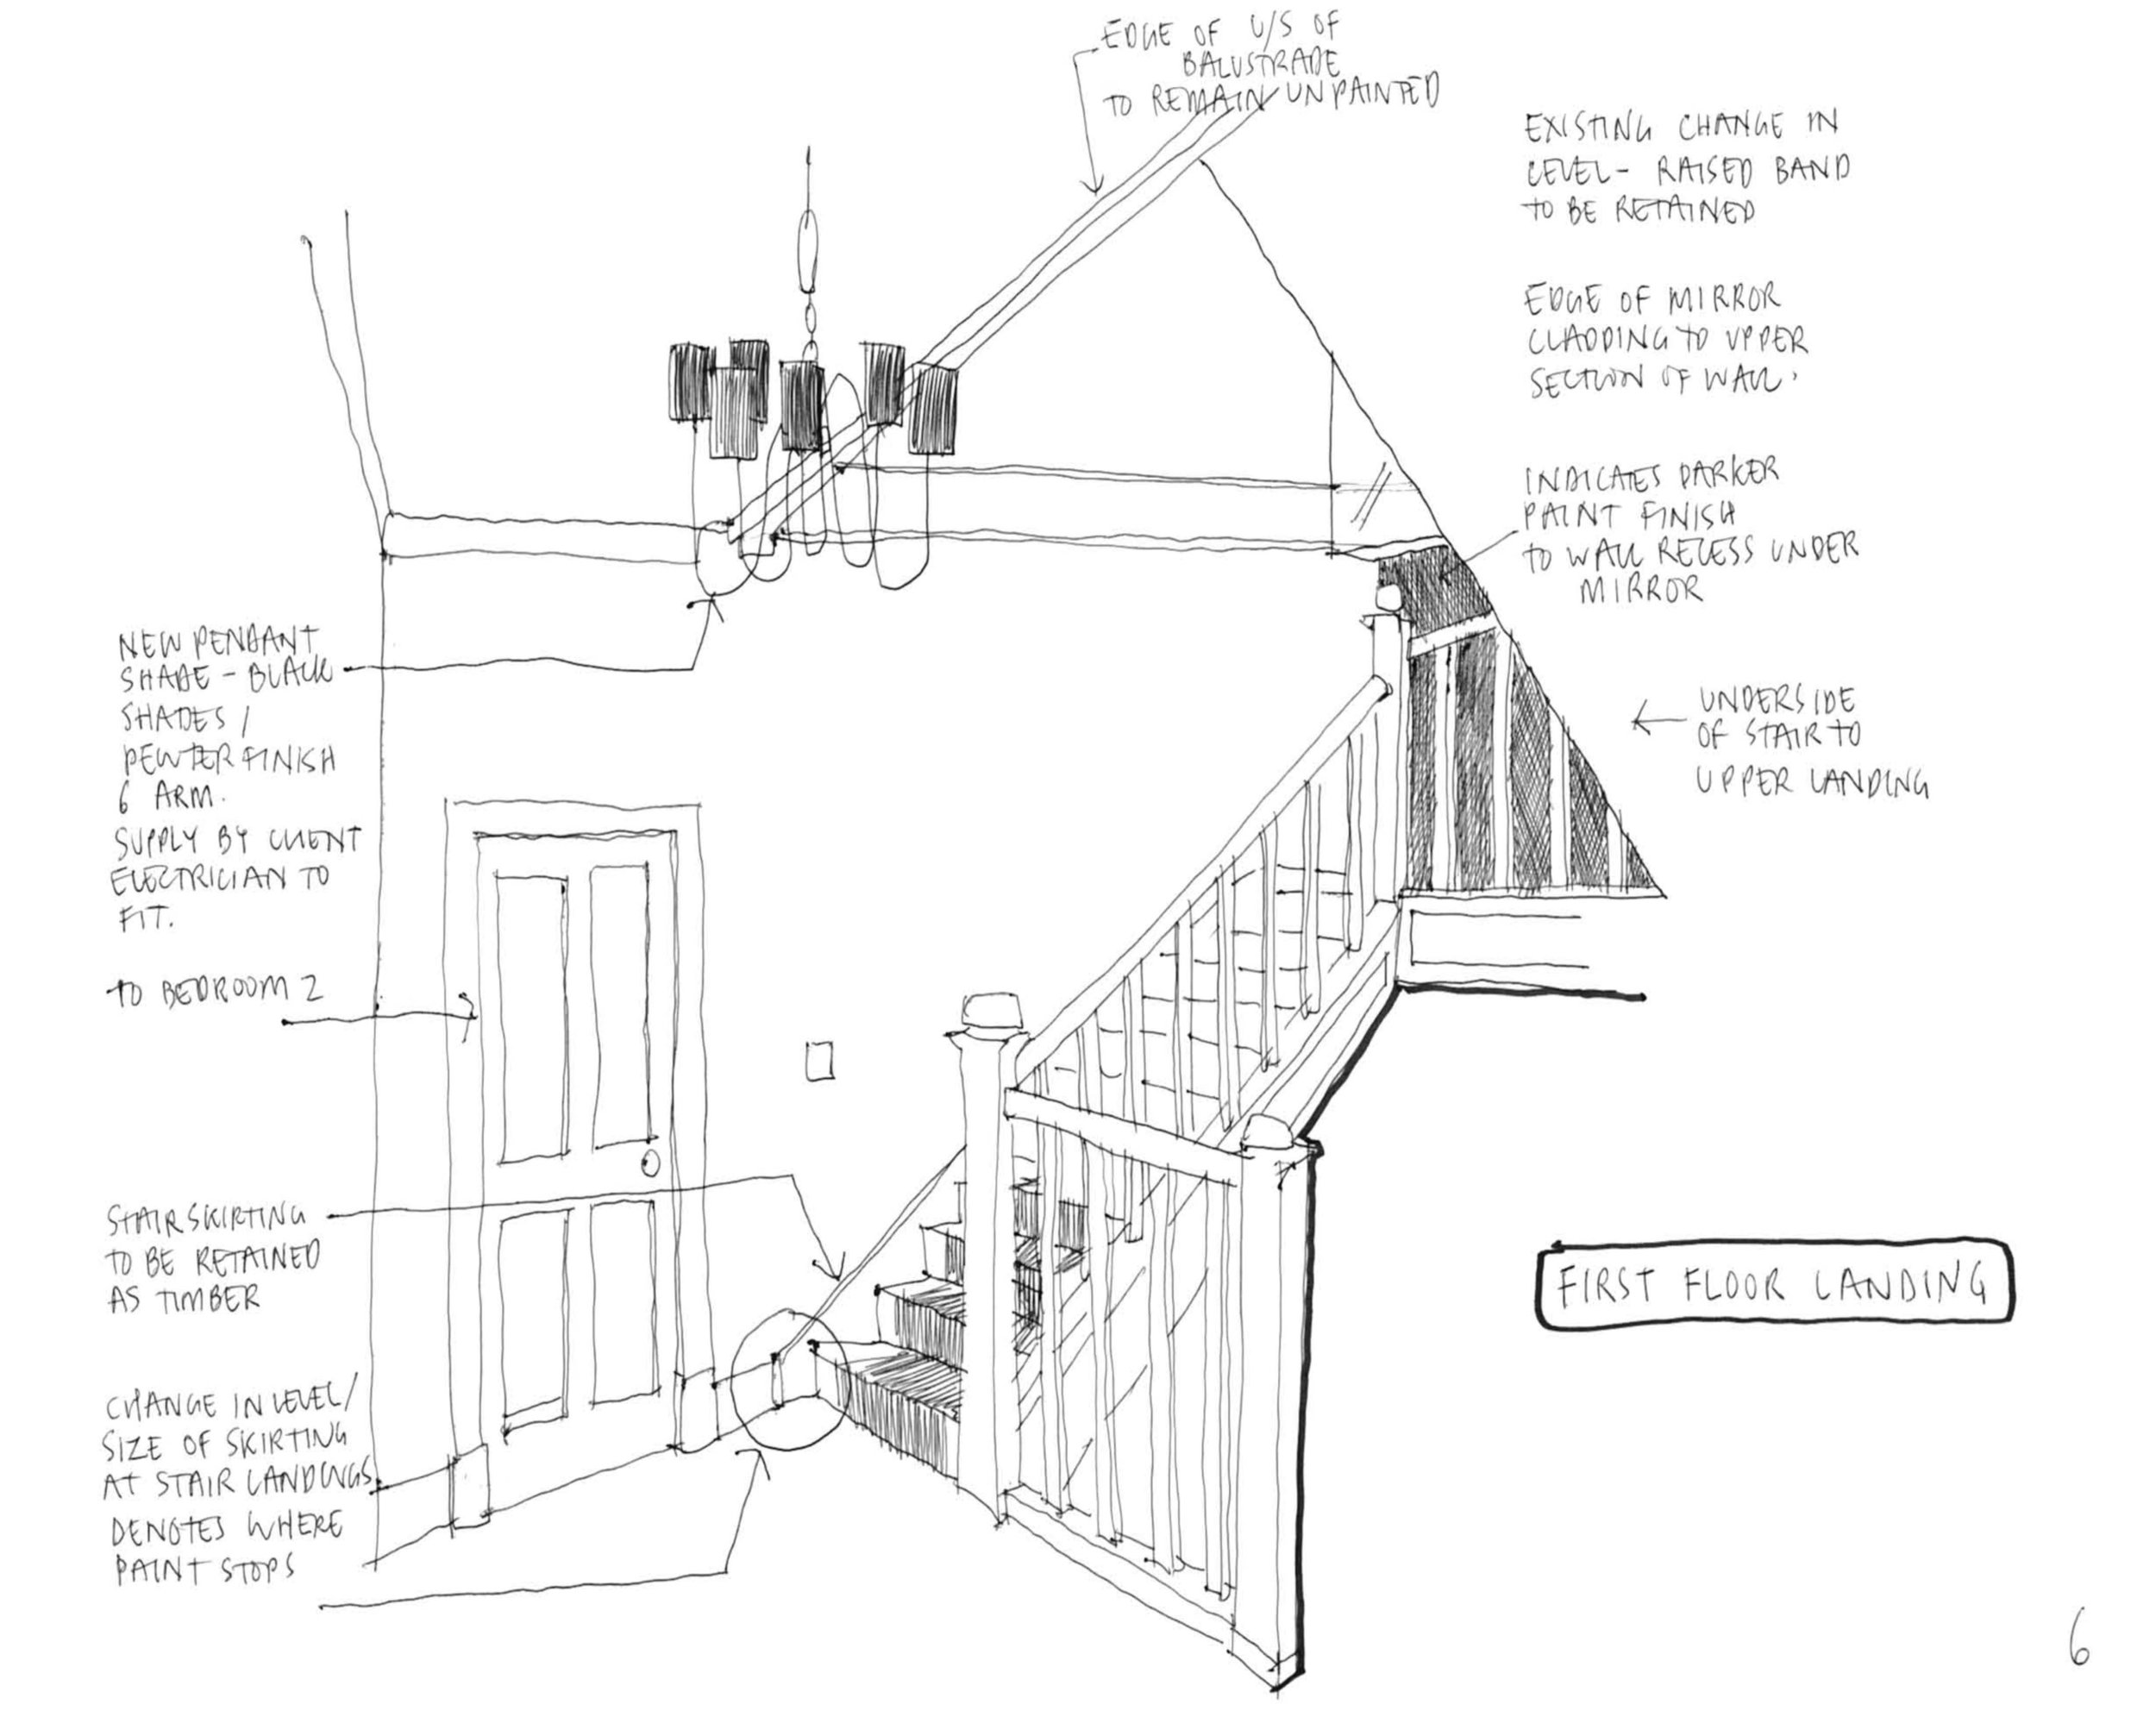 EDGE OF U/S OF
BALUSTRADE
TO REMAIN UNPAINTED
EXISTING CHANGE IN
LEVEL- RAISED BAND
TO BE RETAINED
EDGE OF MIRROR
CLADDING TO UPPER
SECTION OF WALL.
INDICATES DARKER
PAINT FINISH
TO WALL RECESS UNDER
MIRROR
UNDERSIDE
OF STAIR TO
UPPER LANDING
NEW PENDANT
SHADE - BLACK
SHADES /
PEWTER FINISH
6 ARM.
SUPPLY BY CLIENT
ELECTRICIAN TO
FIT.
TO BEDROOM 2
STAIR SKIRTING
TO BE RETAINED
AS TIMBER
CHANGE IN LEVEL/
SIZE OF SKIRTING
AT STAIR LANDINGS
DENOTES WHERE
PAINT STOPS
FIRST FLOOR LANDING
6